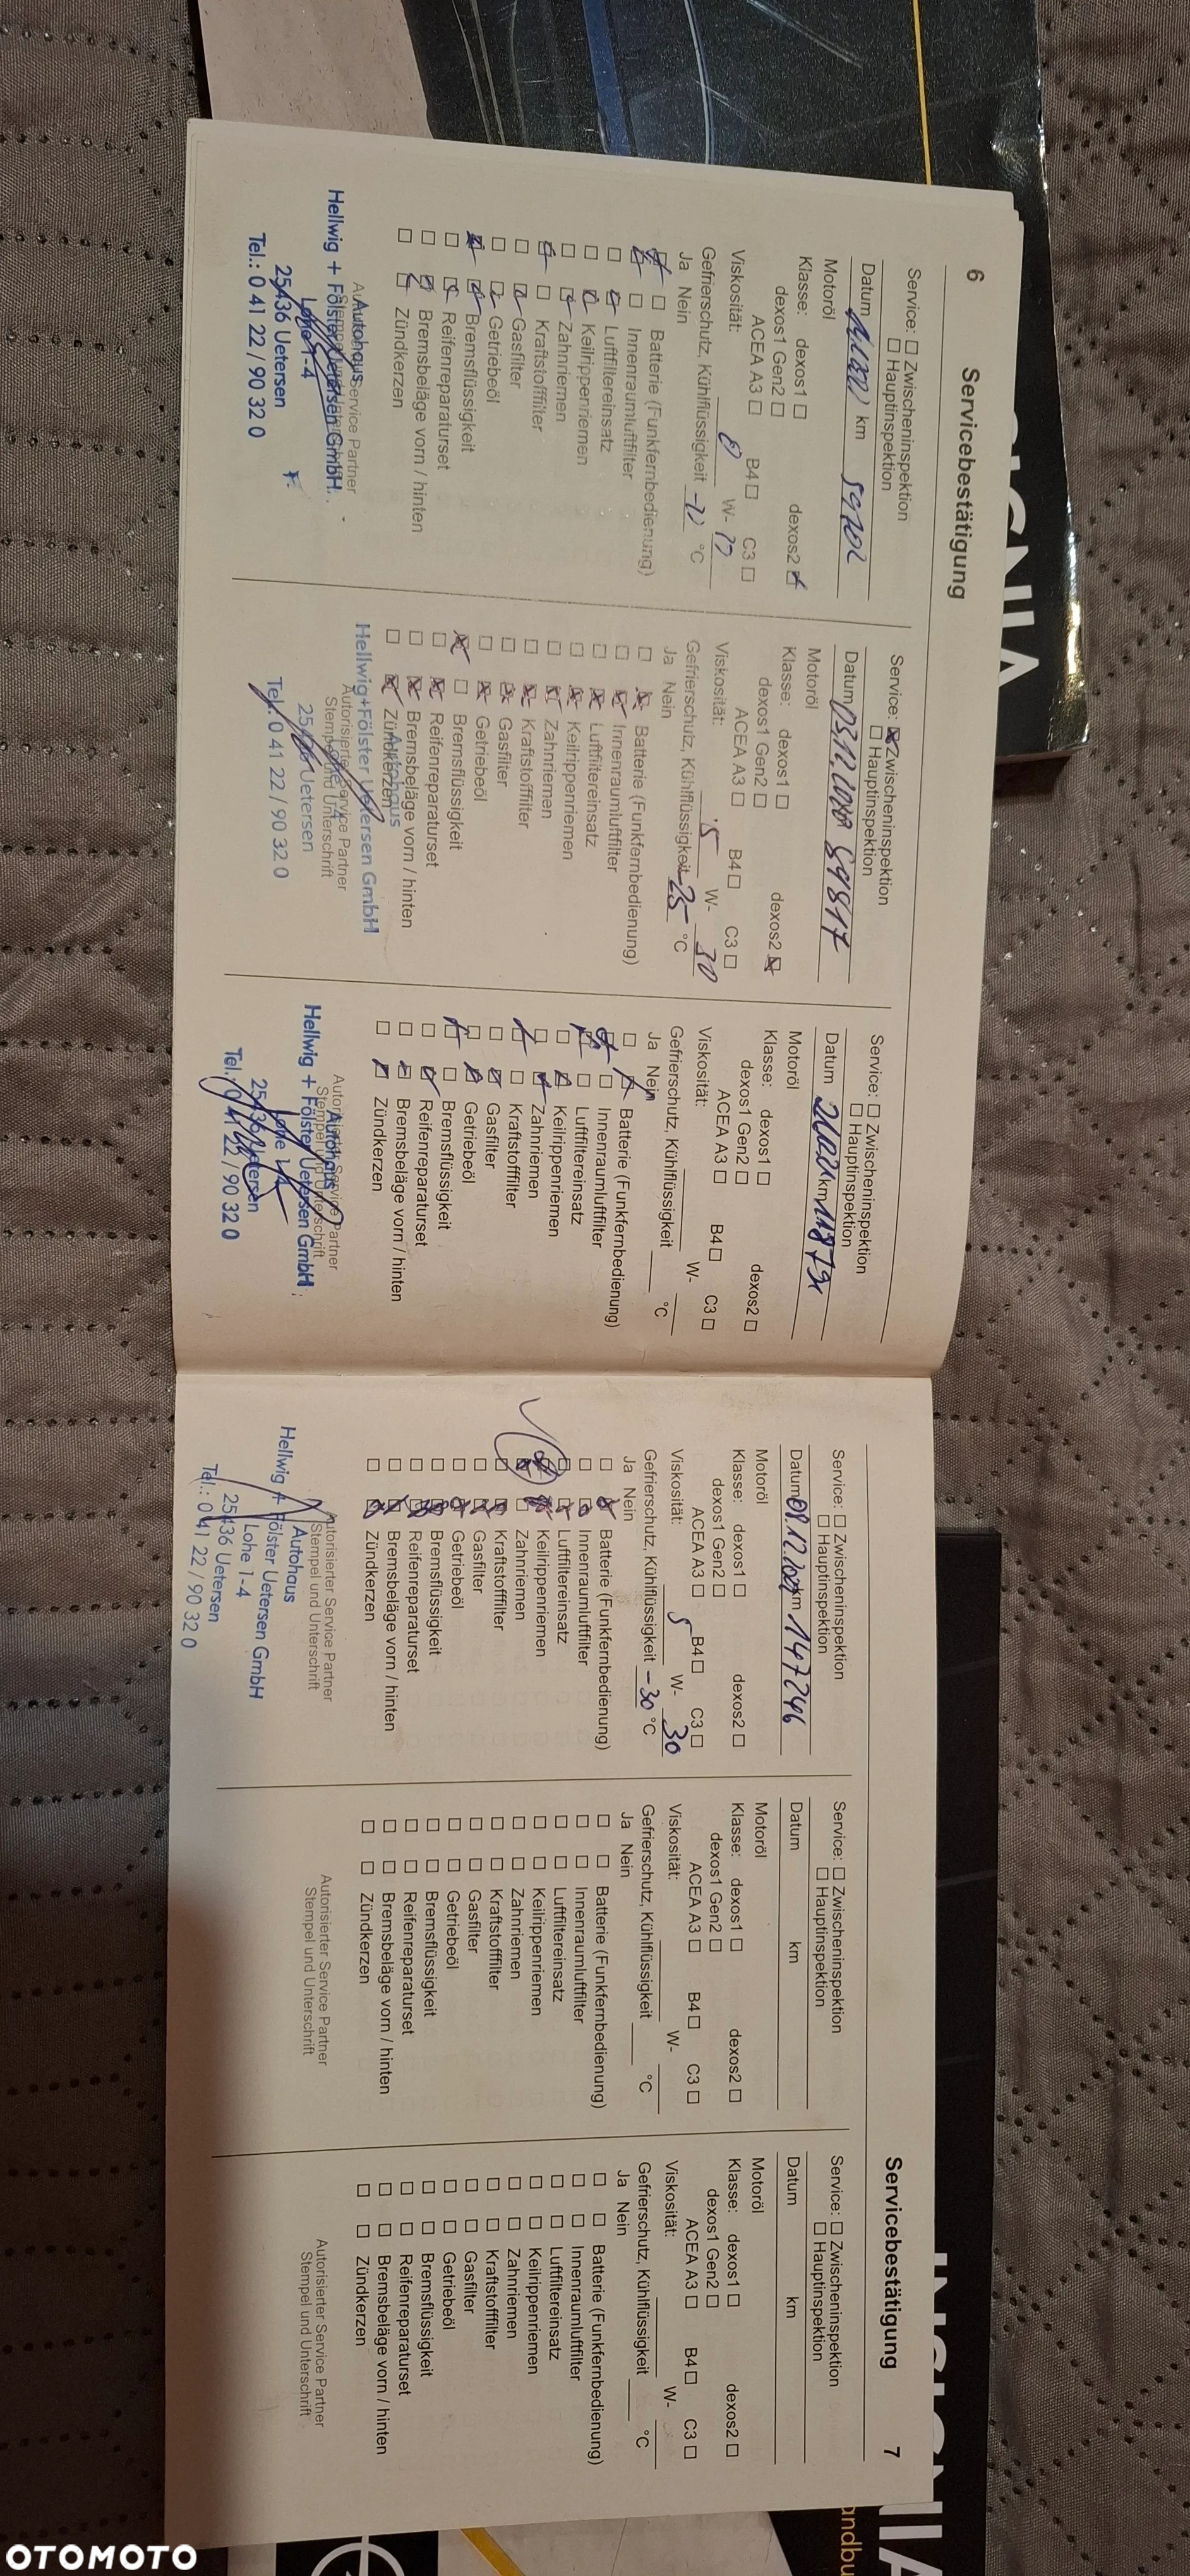 6 Servicebestätigung
Service: Zwischeninspektion
Hauptinspektion
Datum km
Motoröl
Klasse: dexos1 dexos2
dexos1 Gen2
ACEA A3 B4 C3
Viskosität: W-
Gefrierschutz, Kühlflüssigkeit °C
Ja Nein
Batterie (Funkfernbedienung)
Innenraumluftfilter
Luftfiltereinsatz
Keilrippenriemen
Zahnriemen
Kraftstofffilter
Gasfilter
Getriebeöl
Bremsflüssigkeit
Reifenreparaturset
Bremsbeläge vorn / hinten
Zündkerzen
Autohaus
Hellwig + Fölster Uetersen GmbH
Lohe 1-4
25436 Uetersen
Tel.: 0 41 22 / 90 32 0
Service: Zwischeninspektion
Hauptinspektion
Datum 89817
Motoröl
Klasse: dexos1 dexos2
dexos1 Gen2
ACEA A3 B4 C3
Viskosität: 5 W- 30
Gefrierschutz, Kühlflüssigkeit -25 °C
Ja Nein
Batterie (Funkfernbedienung)
Innenraumluftfilter
Luftfiltereinsatz
Keilrippenriemen
Zahnriemen
Kraftstofffilter
Gasfilter
Getriebeöl
Bremsflüssigkeit
Reifenreparaturset
Bremsbeläge vorn / hinten
Zündkerzen
Autohaus
Hellwig+Fölster Uetersen GmbH
Autorisierter Service Partner
Stempel und Unterschrift
Uetersen
Tel.: 0 41 22 / 90 32 0
Service: Zwischeninspektion
Hauptinspektion
Datum km
Motoröl
Klasse: dexos1 dexos2
dexos1 Gen2
ACEA A3 B4 C3
Viskosität: W-
Gefrierschutz, Kühlflüssigkeit °C
Ja Nein
Batterie (Funkfernbedienung)
Innenraumluftfilter
Luftfiltereinsatz
Keilrippenriemen
Zahnriemen
Kraftstofffilter
Gasfilter
Getriebeöl
Bremsflüssigkeit
Reifenreparaturset
Bremsbeläge vorn / hinten
Zündkerzen
Autorisierter Service Partner
Stempel und Unterschrift
Autohaus
Hellwig + Fölster Uetersen GmbH
Lohe 1-4
25436 Uetersen
Tel.: 0 41 22 / 90 32 0
Servicebestätigung 7
Service: Zwischeninspektion
Hauptinspektion
Datum 09.12. km 147246
Motoröl
Klasse: dexos1 dexos2
dexos1 Gen2
ACEA A3 B4 C3
Viskosität: 5 W- 30
Gefrierschutz, Kühlflüssigkeit -30 °C
Ja Nein
Batterie (Funkfernbedienung)
Innenraumluftfilter
Luftfiltereinsatz
Keilrippenriemen
Zahnriemen
Kraftstofffilter
Gasfilter
Getriebeöl
Bremsflüssigkeit
Reifenreparaturset
Bremsbeläge vorn / hinten
Zündkerzen
Autorisierter Service Partner
Stempel und Unterschrift
Autohaus
Hellwig + Fölster Uetersen GmbH
Lohe 1-4
25436 Uetersen
Tel.: 0 41 22 / 90 32 0
Service: Zwischeninspektion
Hauptinspektion
Datum km
Motoröl
Klasse: dexos1 dexos2
dexos1 Gen2
ACEA A3 B4 C3
Viskosität: W-
Gefrierschutz, Kühlflüssigkeit °C
Ja Nein
Batterie (Funkfernbedienung)
Innenraumluftfilter
Luftfiltereinsatz
Keilrippenriemen
Zahnriemen
Kraftstofffilter
Gasfilter
Getriebeöl
Bremsflüssigkeit
Reifenreparaturset
Bremsbeläge vorn / hinten
Zündkerzen
Autorisierter Service Partner
Stempel und Unterschrift
Service: Zwischeninspektion
Hauptinspektion
Datum km
Motoröl
Klasse: dexos1 dexos2
dexos1 Gen2
ACEA A3 B4 C3
Viskosität: W-
Gefrierschutz, Kühlflüssigkeit °C
Ja Nein
Batterie (Funkfernbedienung)
Innenraumluftfilter
Luftfiltereinsatz
Keilrippenriemen
Zahnriemen
Kraftstofffilter
Gasfilter
Getriebeöl
Bremsflüssigkeit
Reifenreparaturset
Bremsbeläge vorn / hinten
Zündkerzen
Autorisierter Service Partner
Stempel und Unterschrift
OTOMOTO